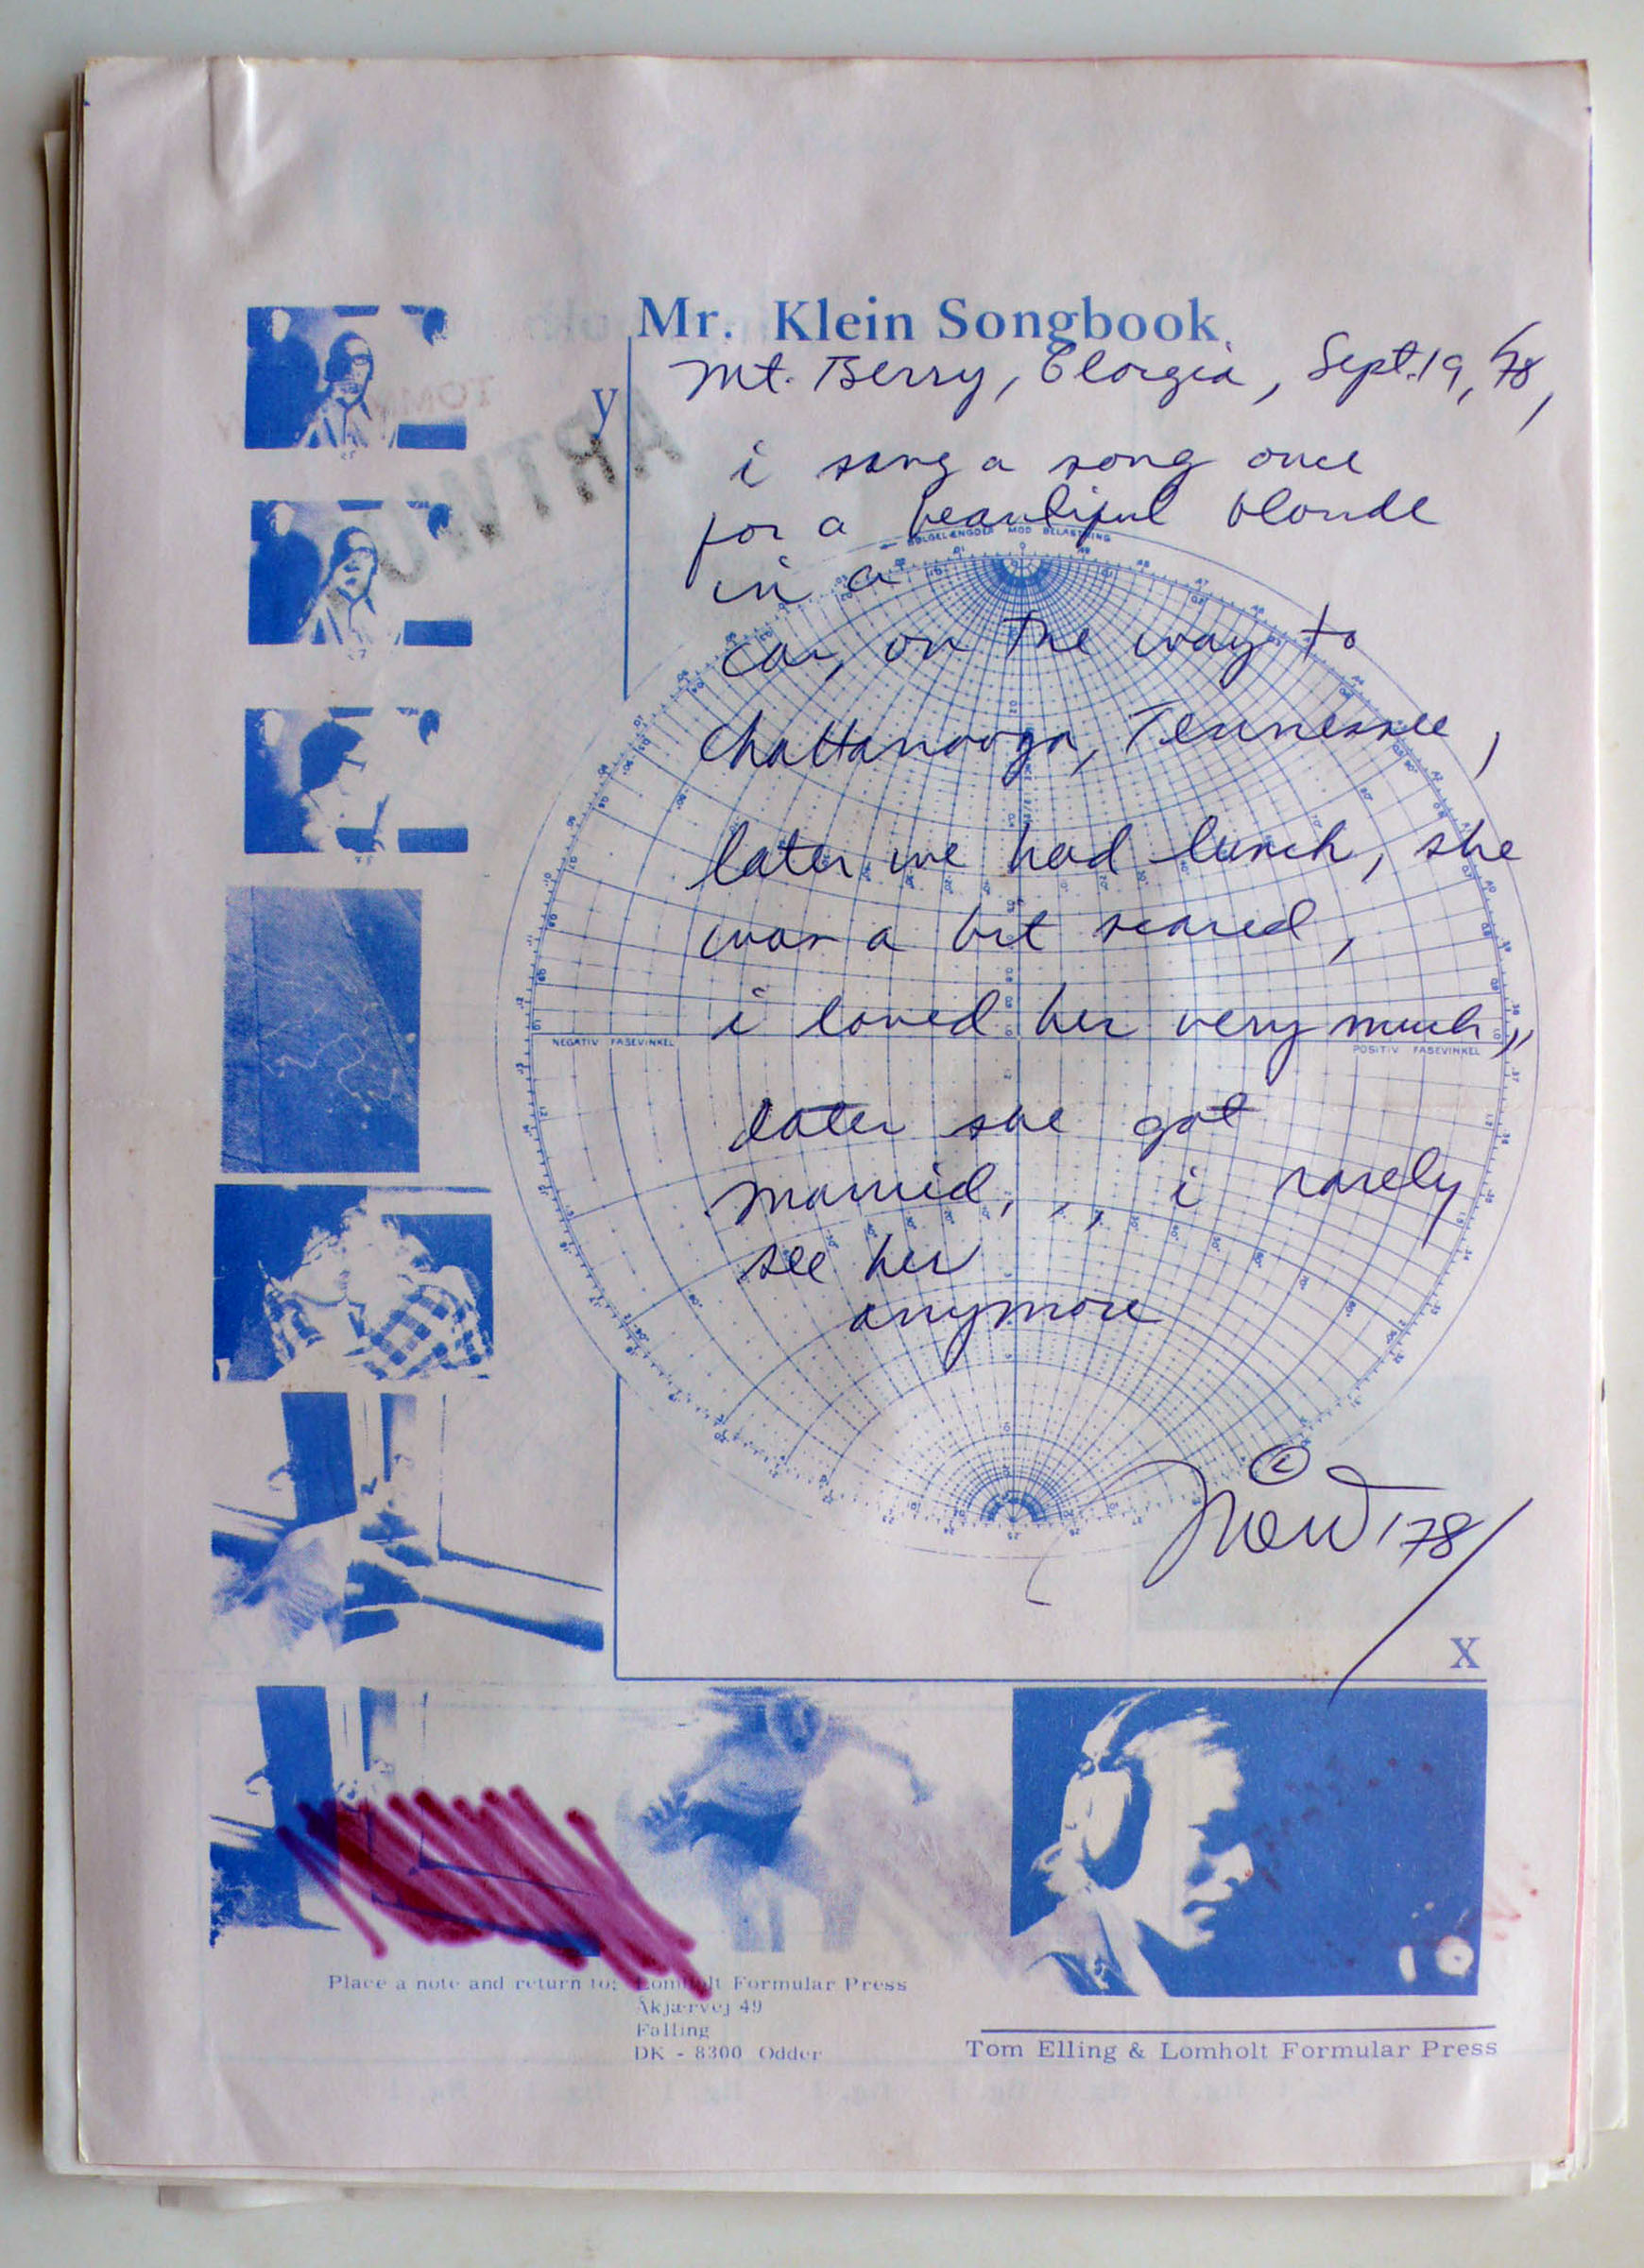 Mr. Klein Songbook
y
Mt. Berry, Georgia, Sept. 19, '78,
i sang a song once
for a beautiful blonde
in a
car, on the way to
Chattanooga, Tennessee,
later we had lunch, she
was a bit scared,
i loved her very much,,
later she got
married, , , i rarely
see her
anymore
BØLGELÆNGDER MOD BELASTNING
NEGATIV FASEVINKEL
POSITIV FASEVINKEL
©
'78/
x
Place a note and return to: Lomholt Formular Press
Åkjærvej 49
Falling
DK - 8300 Odder
Tom Elling & Lomholt Formular Press